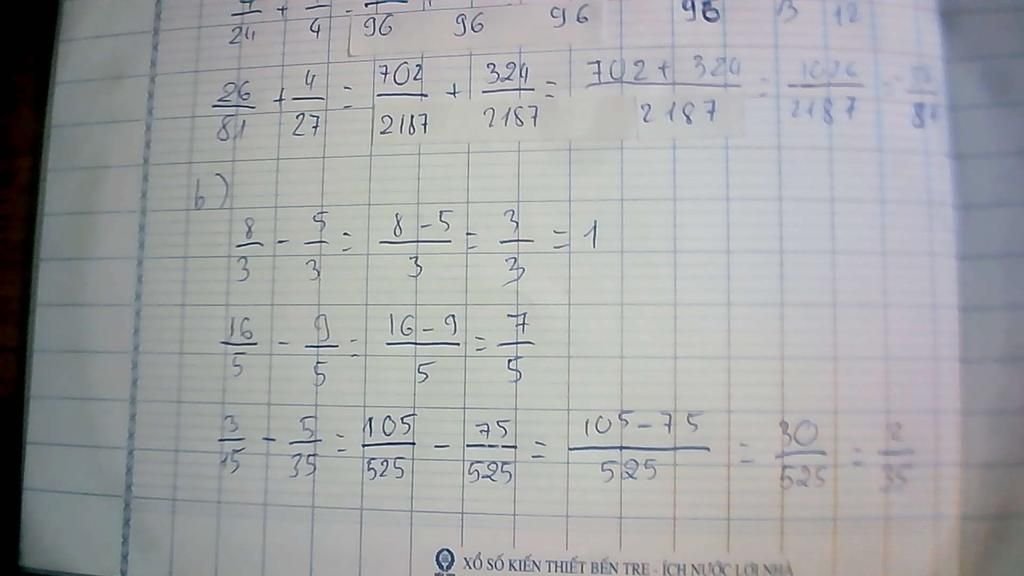 7/24 + /4 = /96 96 96 96 12
26/81 + 4/27 = 702/2187 + 324/2187 = (702 + 324)/2187 = 1026/2187 = /81
b)
8/3 - 5/3 = (8 - 5)/3 = 3/3 = 1
16/5 - 9/5 = (16 - 9)/5 = 7/5
3/15 - 5/35 = 105/525 - 75/525 = (105 - 75)/525 = 30/525 = 2/35
XỔ SỐ KIẾN THIẾT BẾN TRE - ÍCH NƯỚC LỢI NHÀ